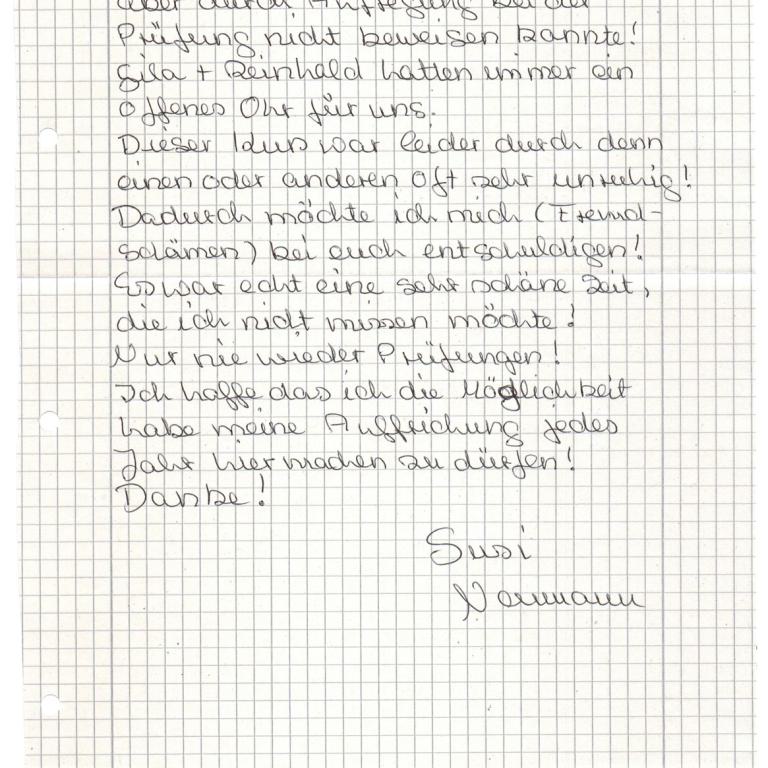 aber durch Aufregung bei der
Prüfung nicht beweisen konnte!
Gisa + Reinhold hatten immer ein
offenes Ohr für uns.
Dieser Kurs war leider durch denn
einen oder anderen oft sehr unruhig!
Dadurch möchte ich mich (Fremd-
schämen) bei euch entschuldigen!
Es war echt eine sehr schöne Zeit,
die ich nicht missen möchte!
Nur nie wieder Prüfungen!
Ich hoffe das ich die Möglichkeit
habe meine Auffrichung jedes
Jahr hier machen zu dürfen!
Danke!
Susi